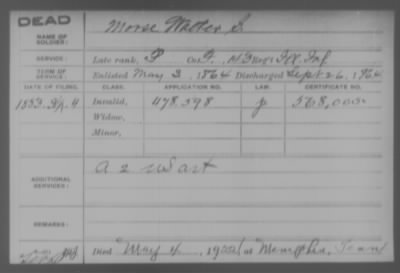 DEAD
NAME OF SOLDIER: Morse Walter S.
SERVICE: Late rank, P Co. Regt Ill Inf
TERM OF SERVICE: Enlisted May 3, 1864 Discharged Sept 26, 1864
DATE OF FILING. CLASS. APPLICATION NO. LAW. CERTIFICATE NO.
4 Invalid, 478,598 568,000
Widow,
Minor,
ADDITIONAL SERVICES: A 2 US art
REMARKS:
Died May 4, at Memphis, Tenn